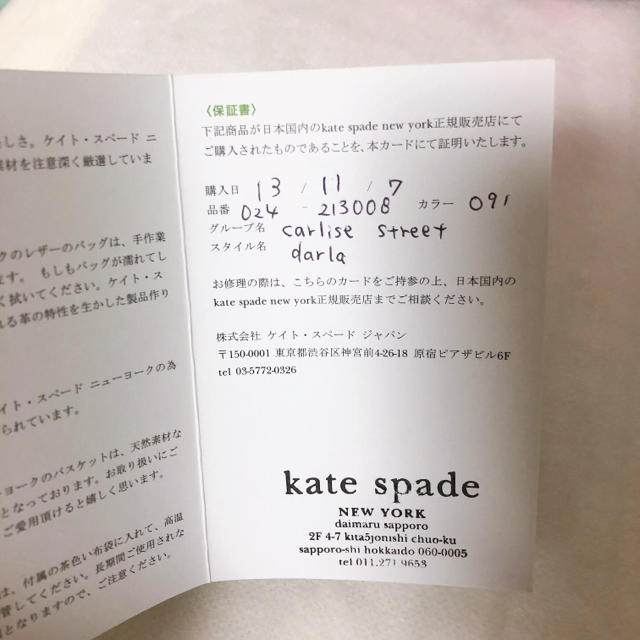 しさ。ケイト・スペード ニ
素材を注意深く厳選していま
クのレザーのバッグは、手作業
ます。 もしもバッグが濡れてし
く拭いてください。ケイト・ス
れる革の特性を生かした製品作り
イト・スペード ニューヨークの為
られています。
ーヨークのバスケットは、天然素材な
となっております。お取り扱いにご
ご愛用頂けると嬉しく思います。
は、付属の茶色い布袋に入れて、高温
管してください。長期間ご使用されな
となりますので、ご注意ください。
〈保証書〉
下記商品が日本国内のkate spade new york正規販売店にて
ご購入されたものであることを、本カードにて証明いたします。
購入日 13 / 11 / 7
品番 024 - 213008 カラー 091
グループ名 carlise street
スタイル名 darla
お修理の際は、こちらのカードをご持参の上、日本国内の
kate spade new york正規販売店までご相談ください。
株式会社 ケイト・スペード ジャパン
〒150-0001 東京都渋谷区神宮前4-26-18 原宿ピアザビル6F
tel 03-5772-0326
kate spade
NEW YORK
daimaru sapporo
2F 4-7 kita5jonishi chuo-ku
sapporo-shi hokkaido 060-0005
tel 011.271 9653